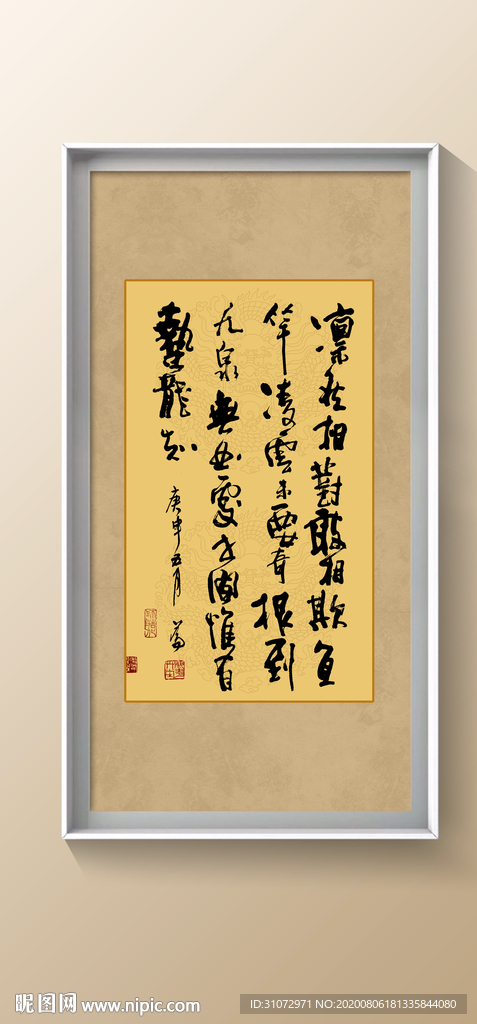 凛然相對敢相欺直
竿凌雲未要奇根到
九泉無曲處世間惟有
蟄龍知
庚申五月
昵图网 www.nipic.com
ID:31072971 NO:20200806181335844080